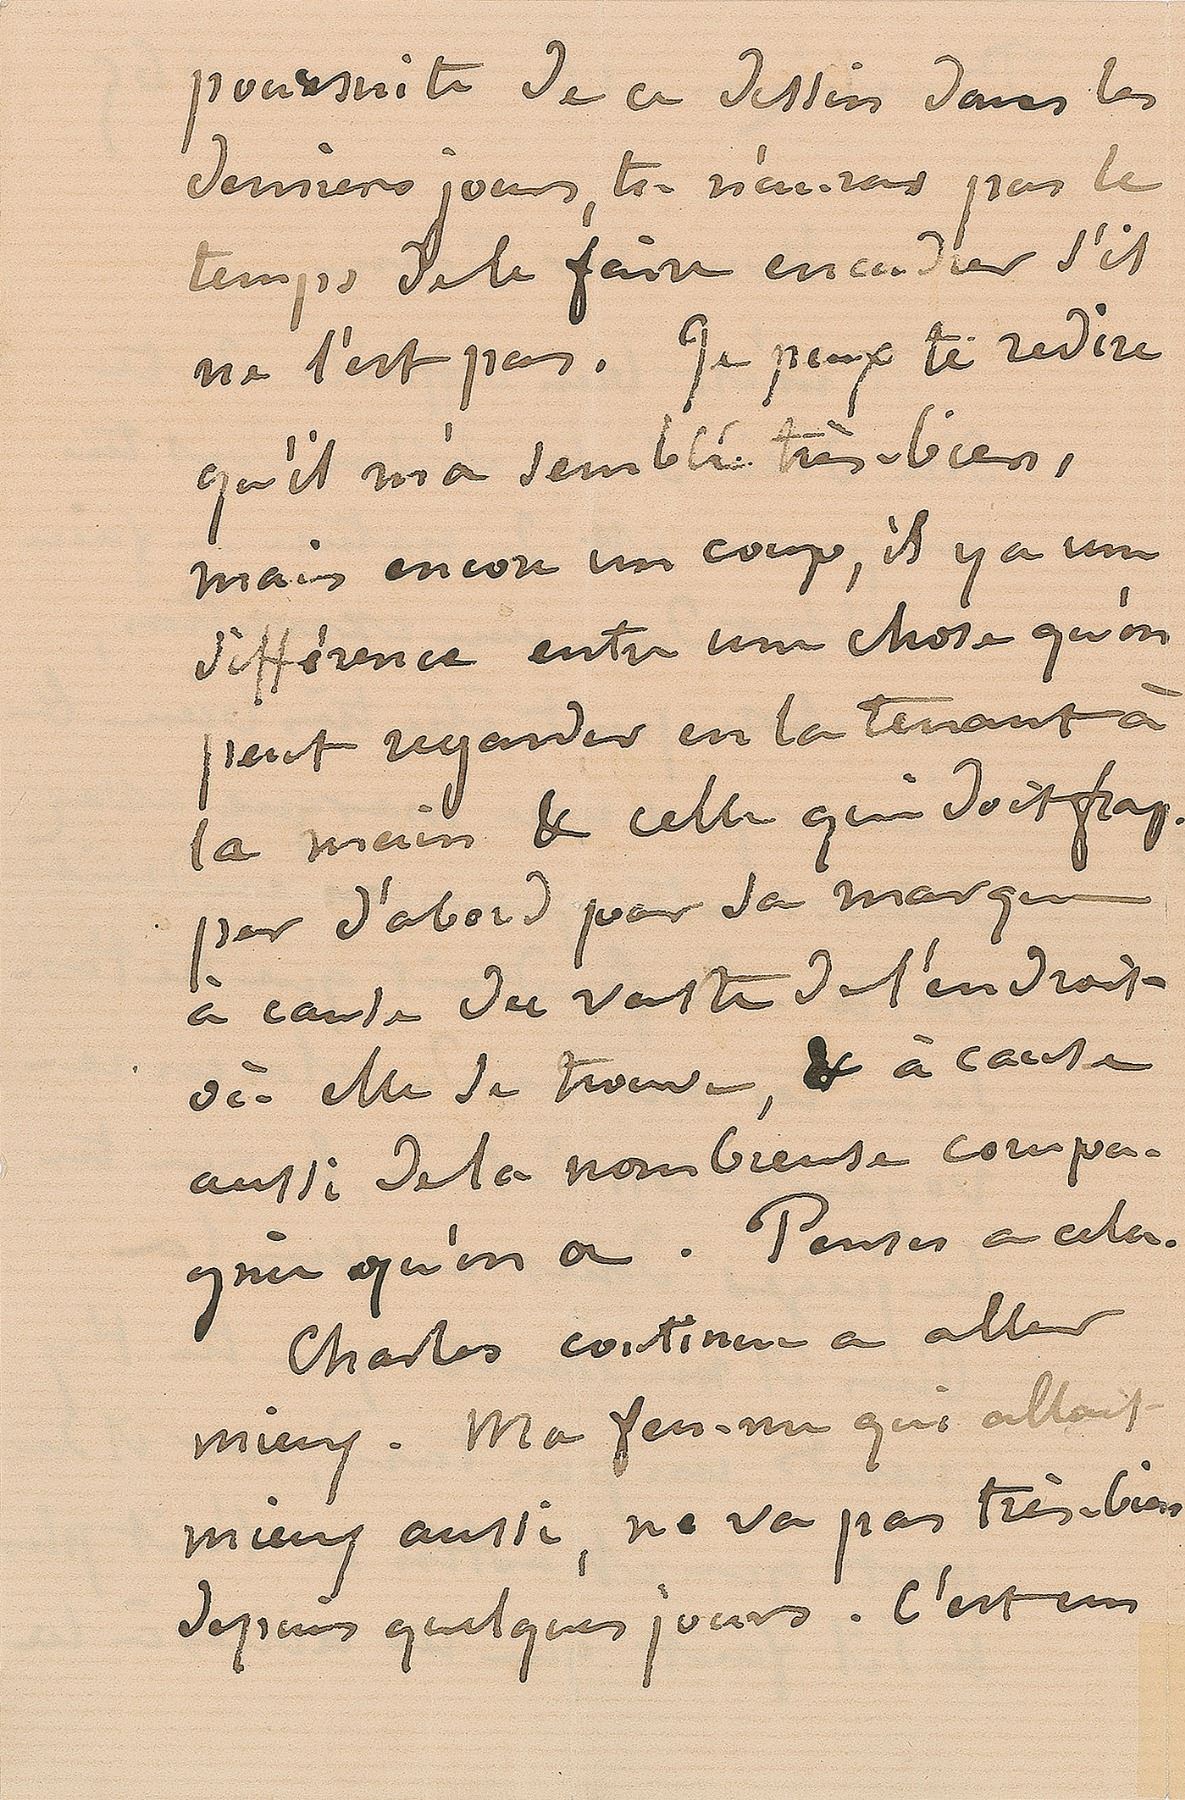 poursuite de ce dessin dans les
derniers jours, tu n'auras pas le
temps de le faire encadrer s'il
ne l'est pas. Je peux te redire
qu'il m'a semblé très-bien,
mais encore un coup, il y a une
différence entre une chose qu'on
peut regarder en la tenant à
la main & celle qui doit frap-
per d'abord par sa marque
à cause du vaste de l'endroit
où elle se trouve, & à cause
aussi de la nombreuse compa-
gnie qu'on a. Penses a cela.
Charles continue a aller
mieux. Ma femme qui allait
mieux aussi, ne va pas très-bien
depuis quelques jours. C'est un